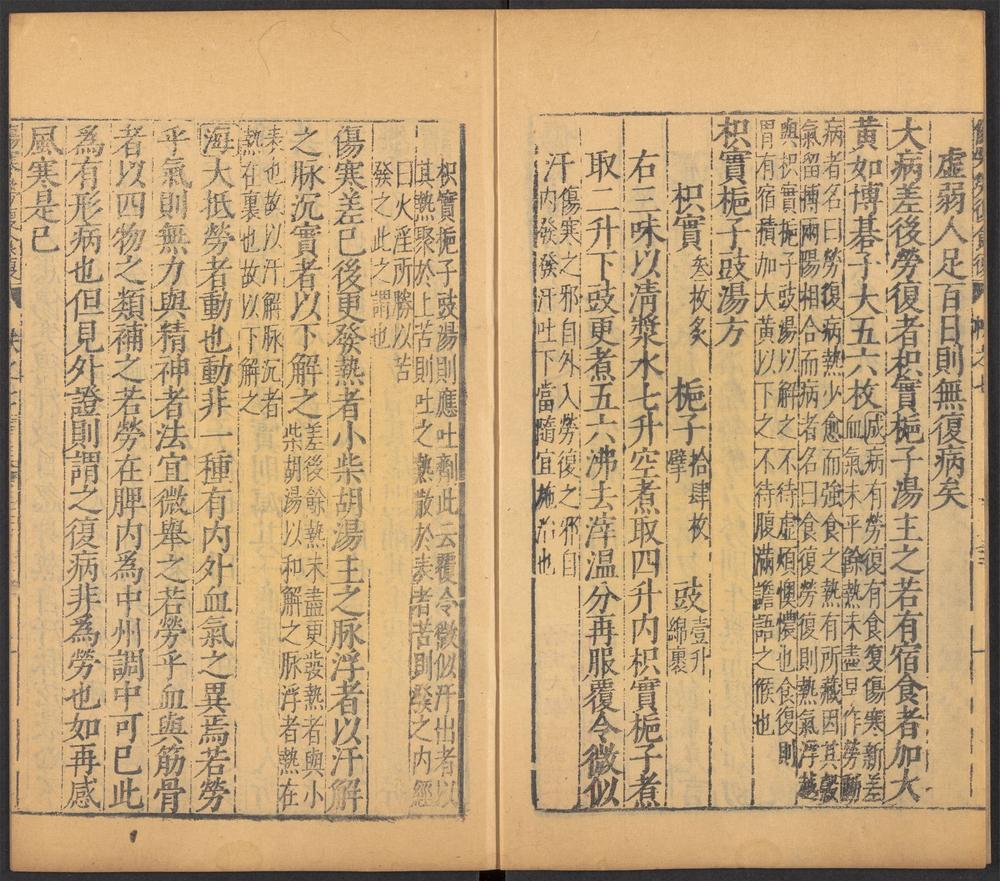 虛弱人足百日則無復病矣
大病差後勞復者枳實梔子湯主之若有宿食者加大
黃如博碁子大五六枚
成病有勞復有食復傷寒新差
血氣未平餘熱未盡早作勞動
病者名曰勞復病熱少愈而強食之熱有所藏因其穀
氣留摶兩陽相合而病者名曰食復勞復則熱氣浮越
與枳實梔子豉湯以解之不待虛煩懊憹也食復則
胃有宿積加大黃以下之不待腹滿譫語之候也
枳實梔子豉湯方
枳實叄枚炙 梔子拾肆枚擘 豉壹升綿裹
右三味以清漿水七升空煮取四升内枳實梔子煮
取二升下豉更煮五六沸去滓温分再服覆令微似
汗
傷寒之邪自外入勞復之邪自
内發發汗吐下當隨宜施治也
枳實梔子豉湯則應吐劑此云覆令微似汗出者以
其熱聚於上苦則吐之熱散於表者苦則發之内經
曰火淫所勝以苦
發之此之謂也
傷寒差已後更發熱者小柴胡湯主之脉浮者以汗解
之脉沉實者以下解之
差後餘熱未盡更發熱者與小
柴胡湯以和解之脉浮者熱在
表也故以汗解脉沉者
熱在裏也故以下解之
海大抵勞者動也動非一種有内外血氣之異焉若勞
乎氣則無力與精神者法宜微舉之若勞乎血與筋骨
者以四物之類補之若勞在脾内為中州調中可已此
為有形病也但見外證則謂之復病非為勞也如再感
風寒是已